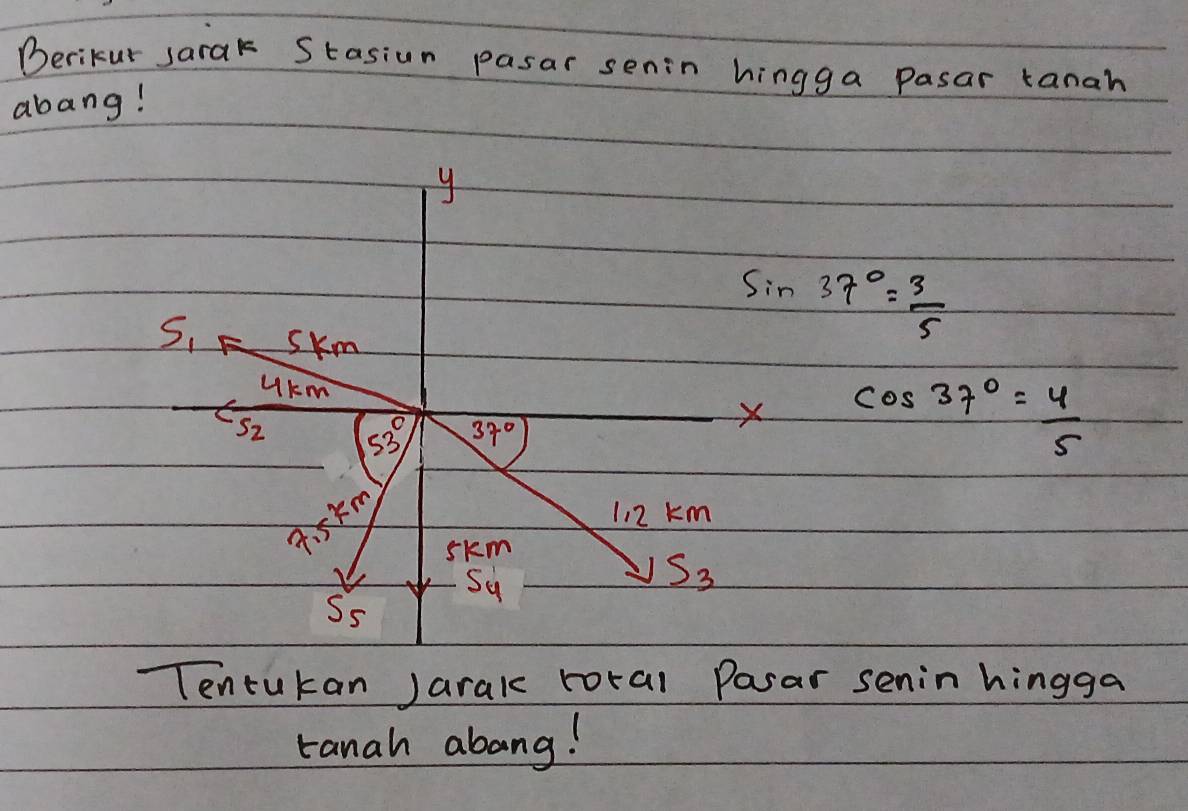 Berikut jarak Stasiun pasar senin hingga pasar tanah
abang!
y
Sin 37° = 3/5
S₁ 5km
4km
S₂
53°
37°
x
cos 37° = 4/5
7.5 km
1,2 km
5km
S₃
S₄
S₅
Tentukan jarak total Pasar senin hingga
tanah abang!